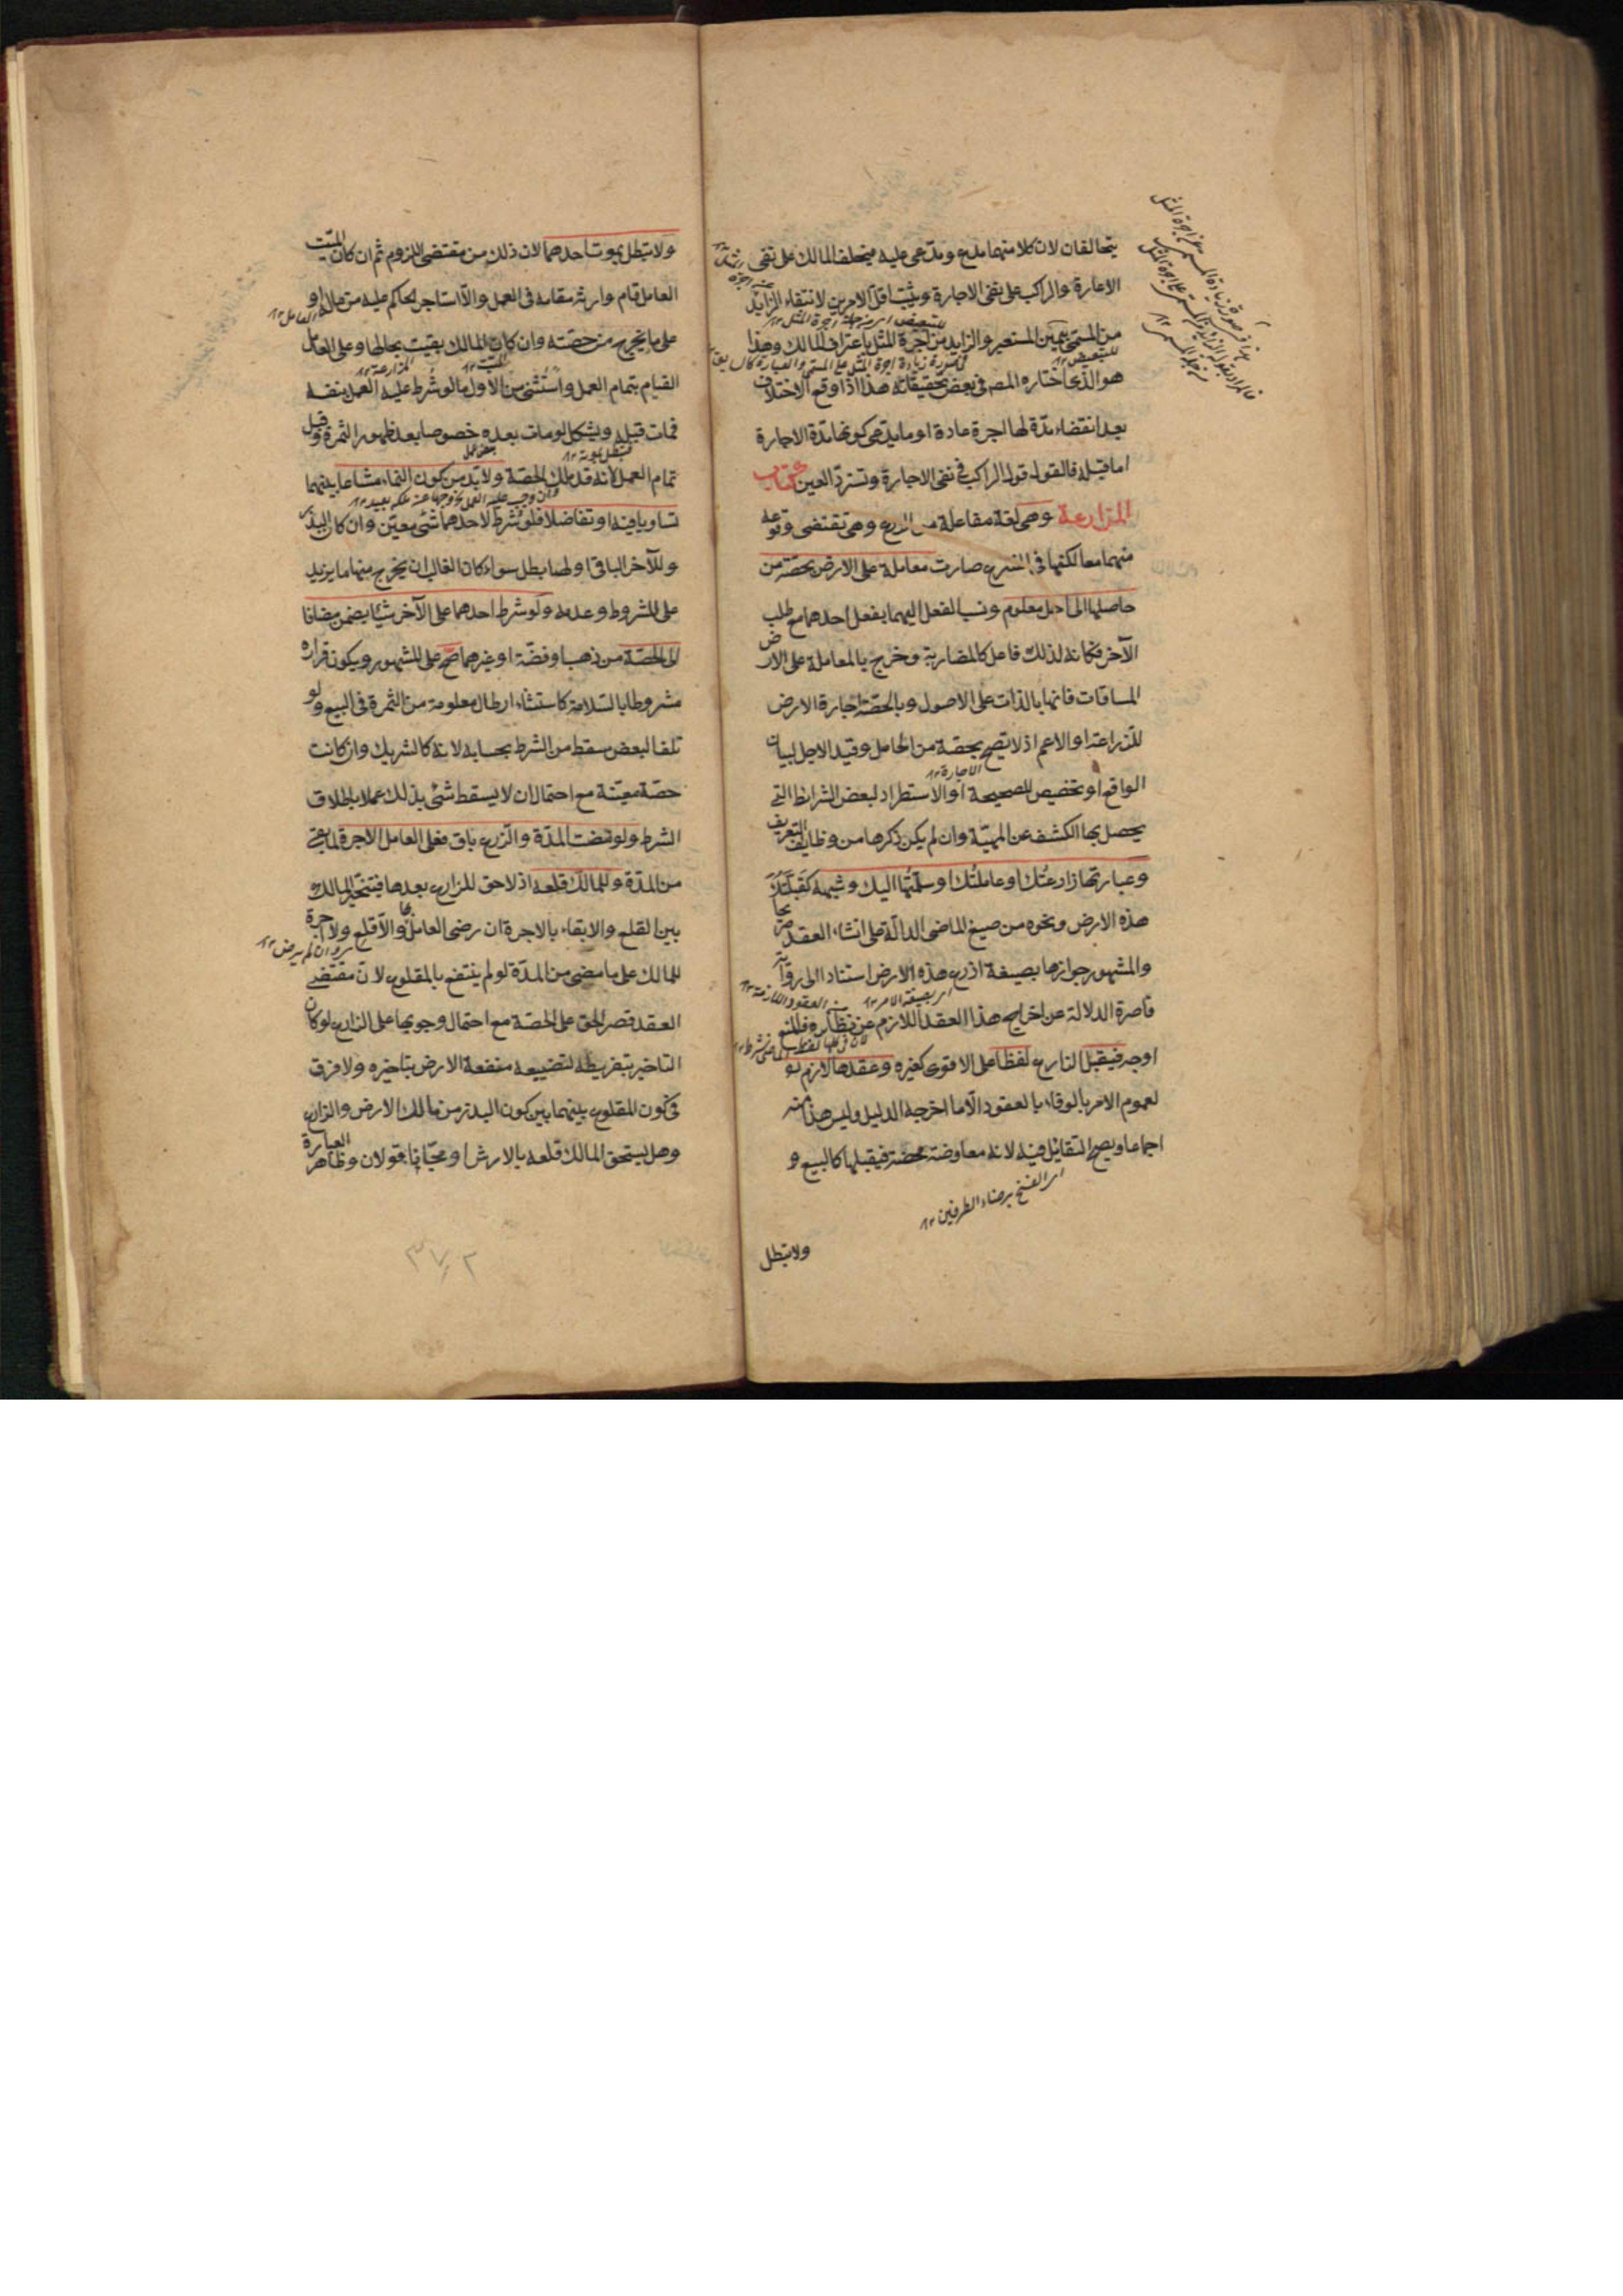 يتحالفان لان كلا منهما مدع ومدعى عليه فيحلف المالك على نفى
الاعارة والراكب على نفى الاجارة ويثبت اقل الامرين لانتفاء الزايد
من المسمى بيمين المستعير والزايد من اجرة المثل باعتراف المالك وهذا
هو الذى اختاره المصـ فى بعض تحقيقاته هذا اذا وقع الاختلاف
بعد انقضاء مدّة لها اجرة عادة او ما يدعى كونها مدّة الاجارة
اما قبله فالقول قول الراكب فى نفى الاجارة وتسترد العين كتاب
المزارعة وهى لغة مفاعلة من الزرع وهى تقتضى وقوعه
منهما معا لكنها فى الشرع صارت معاملة على الارض بحصّة من
حاصلها الى اجل معلوم ونسب الفعل اليهما بفعل احدهما مع طلب
الآخر فكانه لذلك فاعل كالمضاربة وخرج بالمعاملة على الارض
المساقات فانها بالذات على الاصول وبالحصّة اجارة الارض
للزراعة او الاعم اذ لا تصح بحصة من الحاصل وقيد الاجل لبيان
الاجارة ١٢
الواقع او تخصيص للصحيحة او الاستطراد لبعض الشرائط التى
يحصل بها الكشف عن المهيّة وان لم يكن ذكرها من وظايف التعريف
وعبارتها زارعتك او عاملتك او سلّمتها اليك وشبهه كقبّلتك
هذه الارض ونحوه من صيغ الماضى الدالّة على انشاء العقد صريحا
والمشهور جوازها بصيغة ازرع هذه الارض استنادا الى رواية
اى بصيغة الامر ١٢ من العقود اللازمة ١٢
قاصرة الدلالة عن اخراج هذا العقد اللازم عن نظائره فالمنع
اوجه فيقبل الزارع لفظا على الاقوى كغيره وعقدها لازم
لعموم الامر بالوفاء بالعقود الّا ما اخرجه الدليل وليس هذا منه
اجماعا ويصح التقايل فيه لانه معاوضة محضة فيقبلها كالبيع و
اى الفسخ برضاء الطرفين ١٢
ولا تبطل
ولا تبطل بموت احدهما لان ذلك من مقتضى اللزوم ثم ان كان الميّت
العامل قام وارثه مقامه فى العمل والّا استاجر الحاكم عليه من ماله او
العامل ١٢
على ما يخرج من حصّته وان كان المالك بقيت بحالها وعلى العامل
الميّت ١٢ المزارعة ١٢
القيام بتمام العمل واستثنى من الاول ما لو شرط عليه العمل بنفسه
فمات قبله ويشكل لو مات بعده خصوصا بعد ظهور الثمرة وقبل
فتبطل بموته ١٢
تمام العمل لانه قد ملك الحصّة ولا بد من كون النماء مشاعا بينهما
وان وجب عليه العمل وخروجها عن ملكه بعيد ١٢
تساويا فيه او تفاضلا فلو شرط لاحدهما شئ معيّن وان كان البذر
وللآخر الباقى او لهما بطل سواء كان الغالب ان يخرج منها ما يزيد
على المشروط وعدمه ولو شرط احدهما على الآخر شيئا يضمن مضافا
الى الحصّة من ذهب او فضّة او غيرهما صحّ على المشهور ويكون قراره
مشروطا بالسّلامة كاستثناء ارطال معلومة من الثمرة فى البيع ولو
تلف البعض سقط من الشرط بحسابه لانه كالشريك وان كانت
حصّة معيّنة مع احتمال ان لا يسقط شئ بذلك عملا باطلاق
الشرط ولو مضت المدّة والزرع باق فعلى العامل الاجرة لما بقى
من المدّة وللمالك قلعه اذ لا حق للزارع بعدها فيتخيّر المالك
بين القلع والابقاء بالاجرة ان رضى العامل بها والّا قلع ولا اجرة
وان لم يرض ١٢
للمالك على ما مضى من المدّة لو لم ينتفع بالمقلوع لان مقتضى
العقد قصر الحق على الحصّة مع احتمال وجوبها على الزارع لو كان
التاخير بتفريطه لتضييعه منفعة الارض بتاخيره ولا فرق
فى كون المقلوع بينهما بين كون البذر من مالك الارض والزارع
وهل يستحق المالك قلعه بالارش او مجّانا قولان وظاهر العبارة